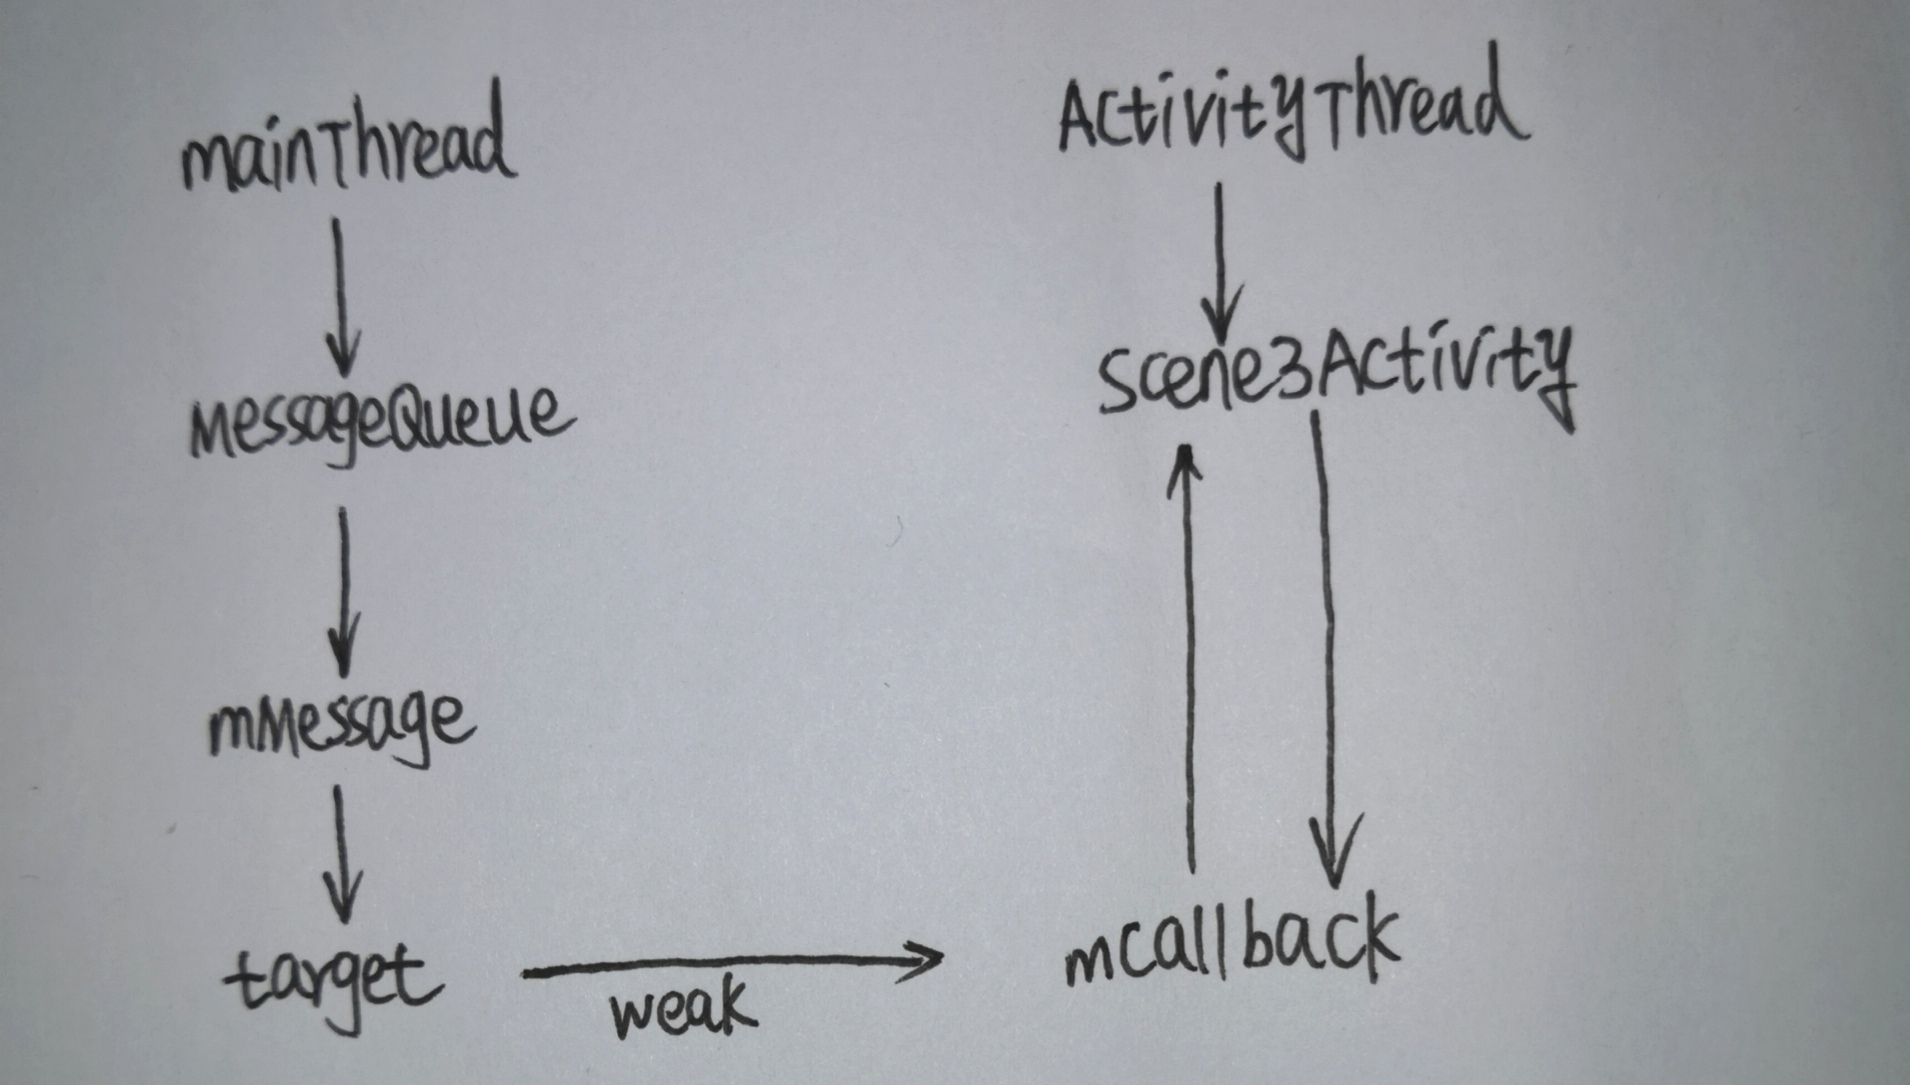 mainThread
MessageQueue
mMessage
target
weak
ActivityThread
Scene3Activity
mcallback